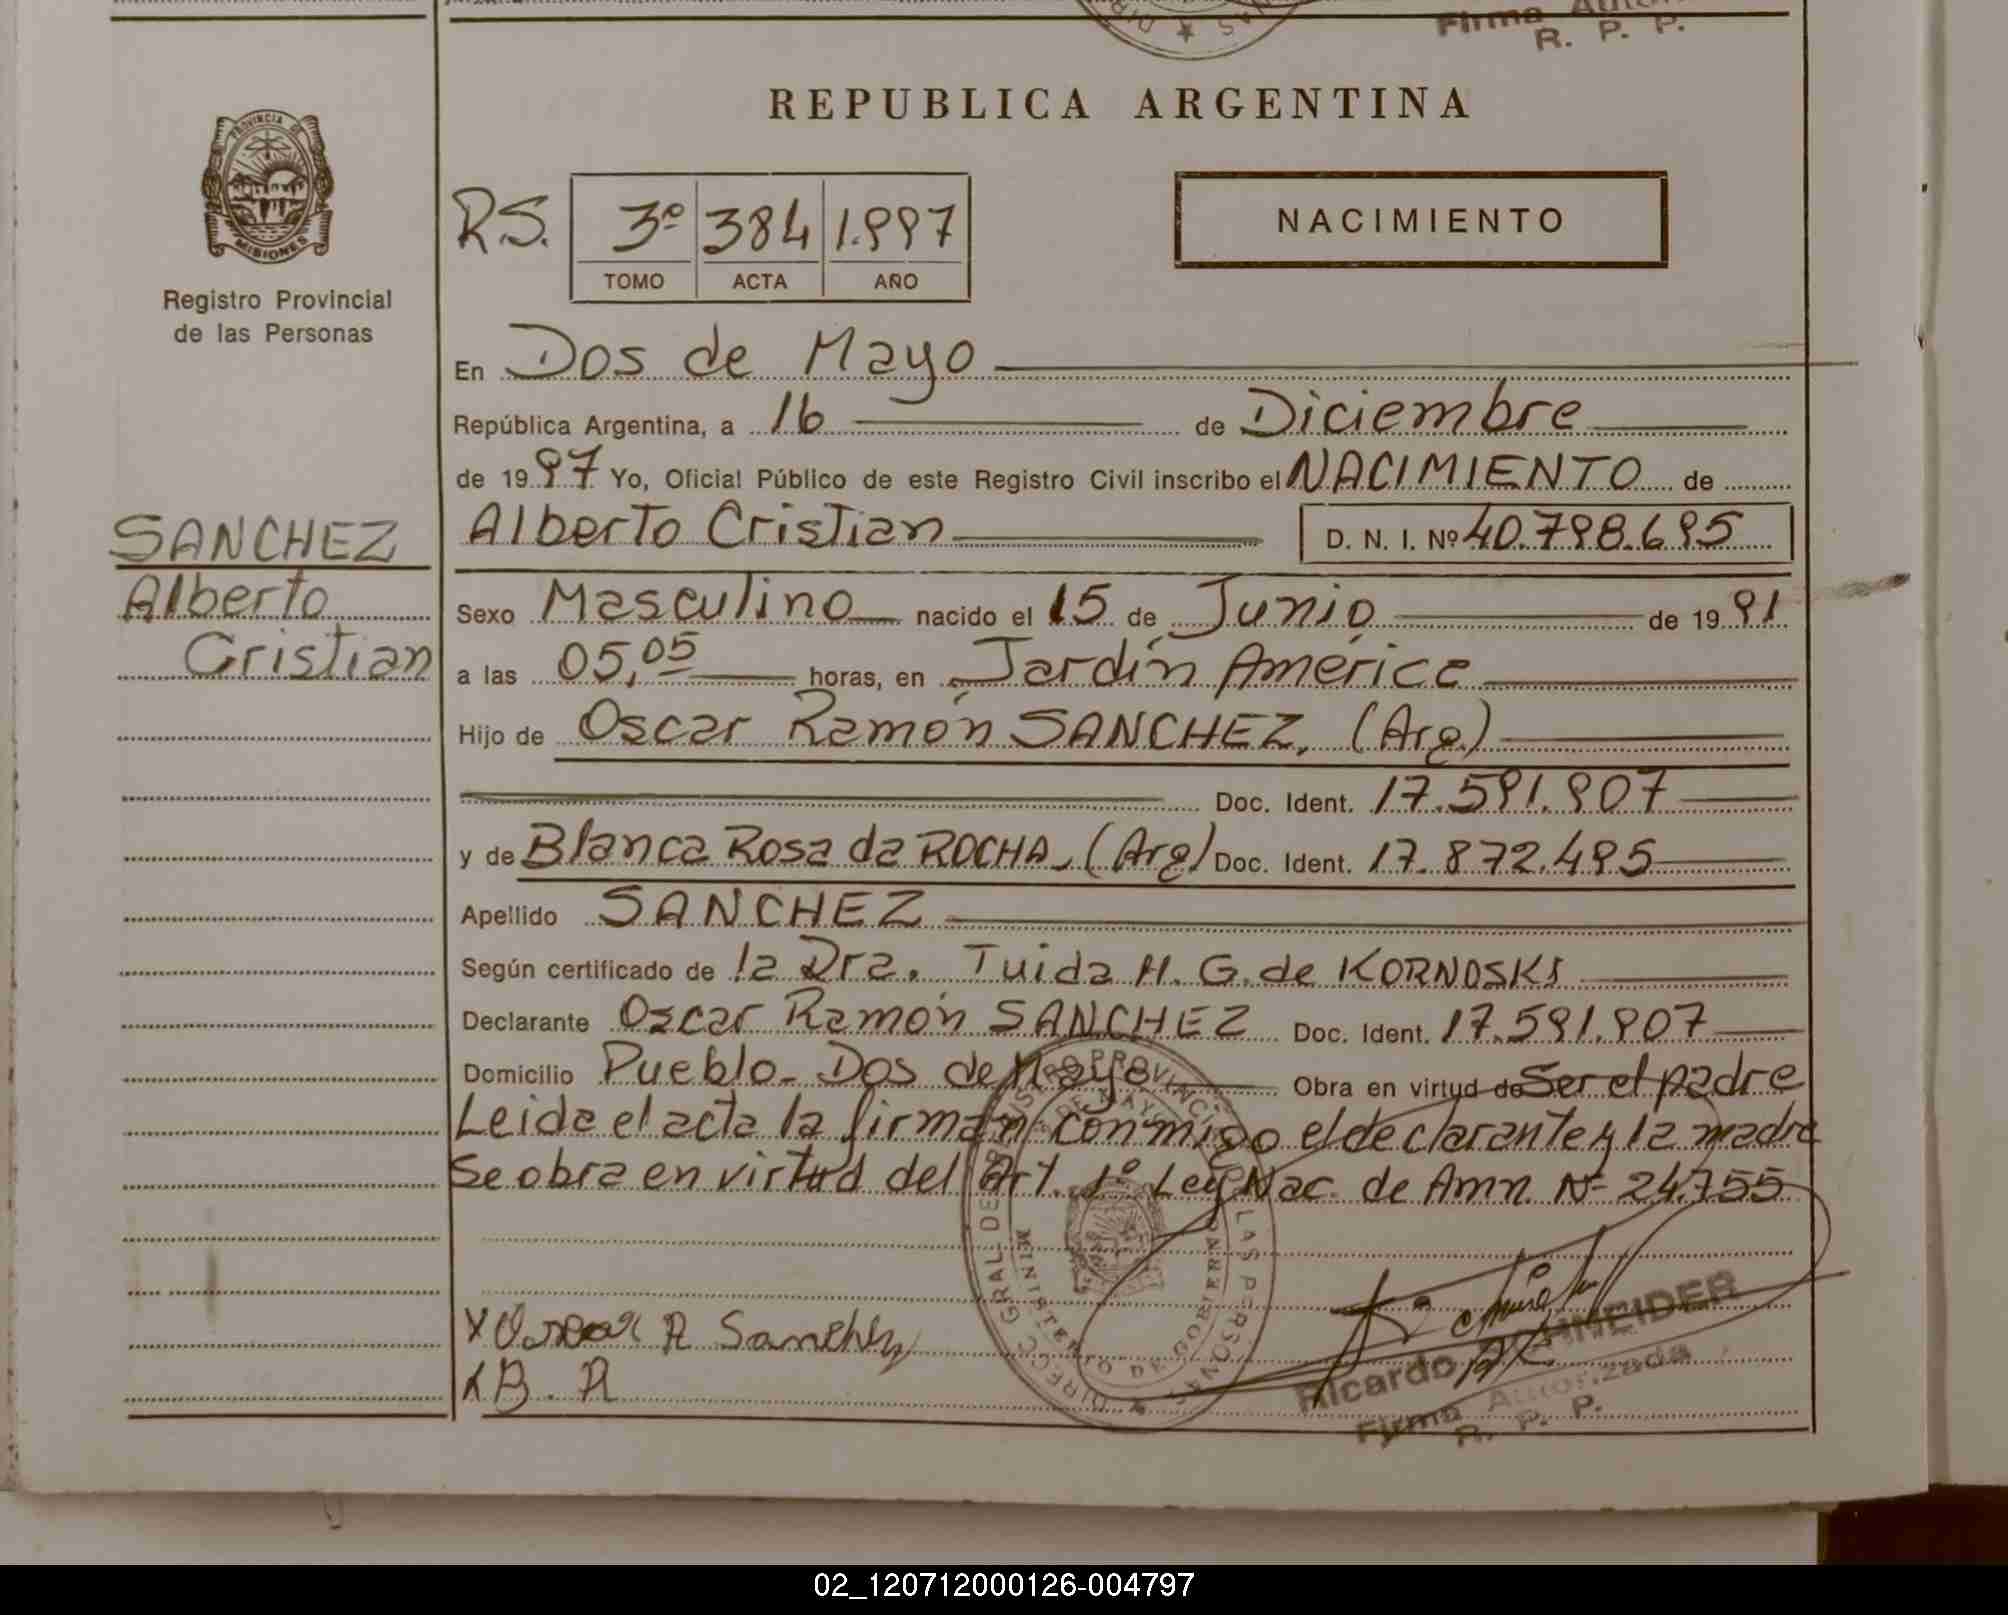 Firma Autori
R. P. P.
REPUBLICA ARGENTINA
PROVINCIA DE
MISIONES
Registro Provincial
de las Personas
R.S. 3º 384 1.997
TOMO ACTA AÑO
NACIMIENTO
En Dos de Mayo
República Argentina, a 16 de Diciembre
de 1997 Yo, Oficial Público de este Registro Civil inscribo el NACIMIENTO de
SANCHEZ
Alberto
Cristian
Alberto Cristian D. N. I. Nº 40.798.695
Sexo Masculino nacido el 15 de Junio de 1991
a las 05,05 horas, en Jardín América
Hijo de Oscar Ramón SANCHEZ, (Arg.)
Doc. Ident. 17.591.907
y de Blanca Rosa da ROCHA, (Arg) Doc. Ident. 17.872.495
Apellido SANCHEZ
Según certificado de la Dra. Tuida H. G. de KORNOSKI
Declarante Oscar Ramón SANCHEZ Doc. Ident. 17.591.907
Domicilio Pueblo- Dos de Mayo Obra en virtud de Ser el padre
Leida el acta la firman conmigo el declarante y la madre
Se obra en virtud del Art. 1º Ley Nac. de Amn. Nº 24.755
DIRECC GRAL DEL REGISTRO PROVINCIAL DE LAS PERSONAS
DOS DE MAYO
MINISTERIO DE GOBIERNO
X Oscar R Sanchez
X B. R
Ricardo SCHNEIDER
Firma Autorizada
R. P. P.
02_120712000126-004797